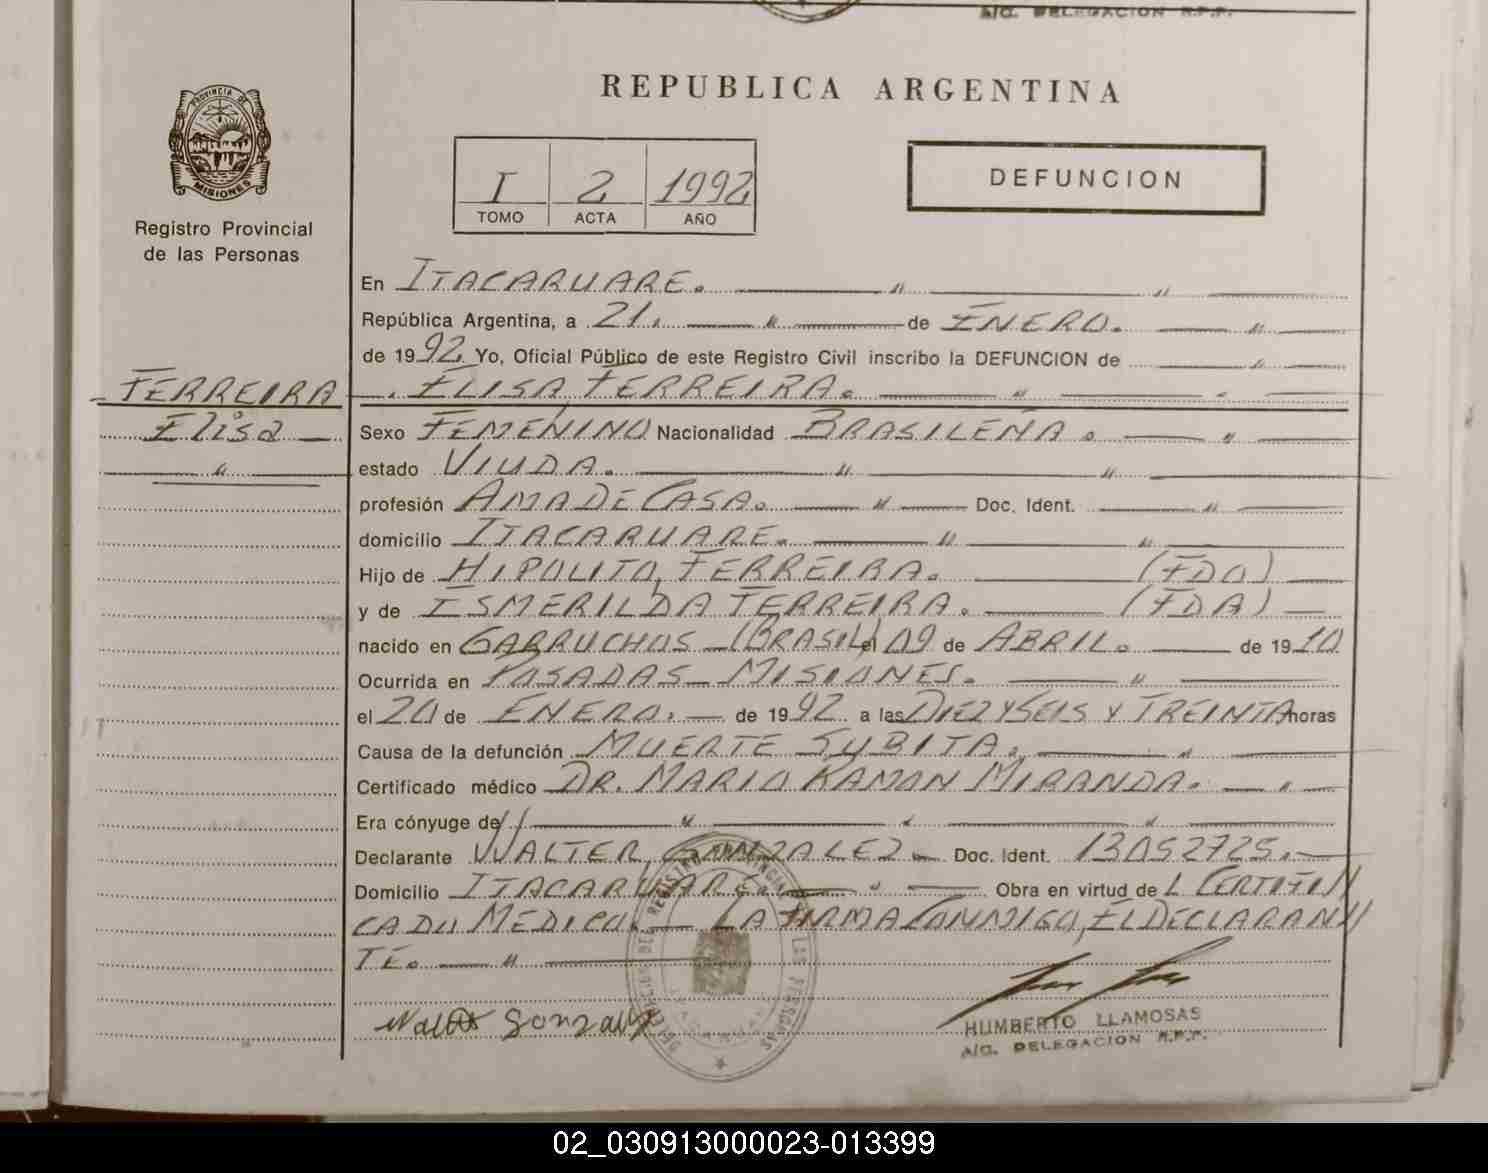 A/C. DELEGACION R.P.P.
REPUBLICA ARGENTINA
PROVINCIA DE
MISIONES
Registro Provincial
de las Personas
I 2 1992
TOMO ACTA AÑO
DEFUNCION
En ITACARUARE. " "
República Argentina, a 21. " de ENERO. "
de 1992 Yo, Oficial Público de este Registro Civil inscribo la DEFUNCION de "
FERREIRA
Elisa
"
ELISA, FERREIRA. "
Sexo FEMENINO Nacionalidad BRASILEÑA. "
estado VIUDA. " "
profesión AMA DE CASA. " Doc. Ident. "
domicilio ITACARUARE. " "
Hijo de HIPOLITO, FERREIRA. (FDO)
y de ISMERILDA FERREIRA. (FDA)
nacido en GARRUCHOS - (BRASIL) el 09 de ABRIL. de 1910
Ocurrida en POSADAS - MISIONES. "
el 20 de ENERO. de 1992 a las DIEZ Y SEIS Y TREINTA horas
Causa de la defunción MUERTE SUBITA. "
Certificado médico DR. MARIO RAMON MIRANDA. "
Era cónyuge de // " " "
Declarante WALTER, GONZALEZ. Doc. Ident. 13052725.
Domicilio ITACARUARE. " Obra en virtud de L CERTIFI//
CADO MEDICO. LA FIRMA CONMIGO, EL DECLARAN//
TE. "
Walter Gonzalez
HUMBERTO LLAMOSAS
A/C. DELEGACION R.P.P.
02_030913000023-013399